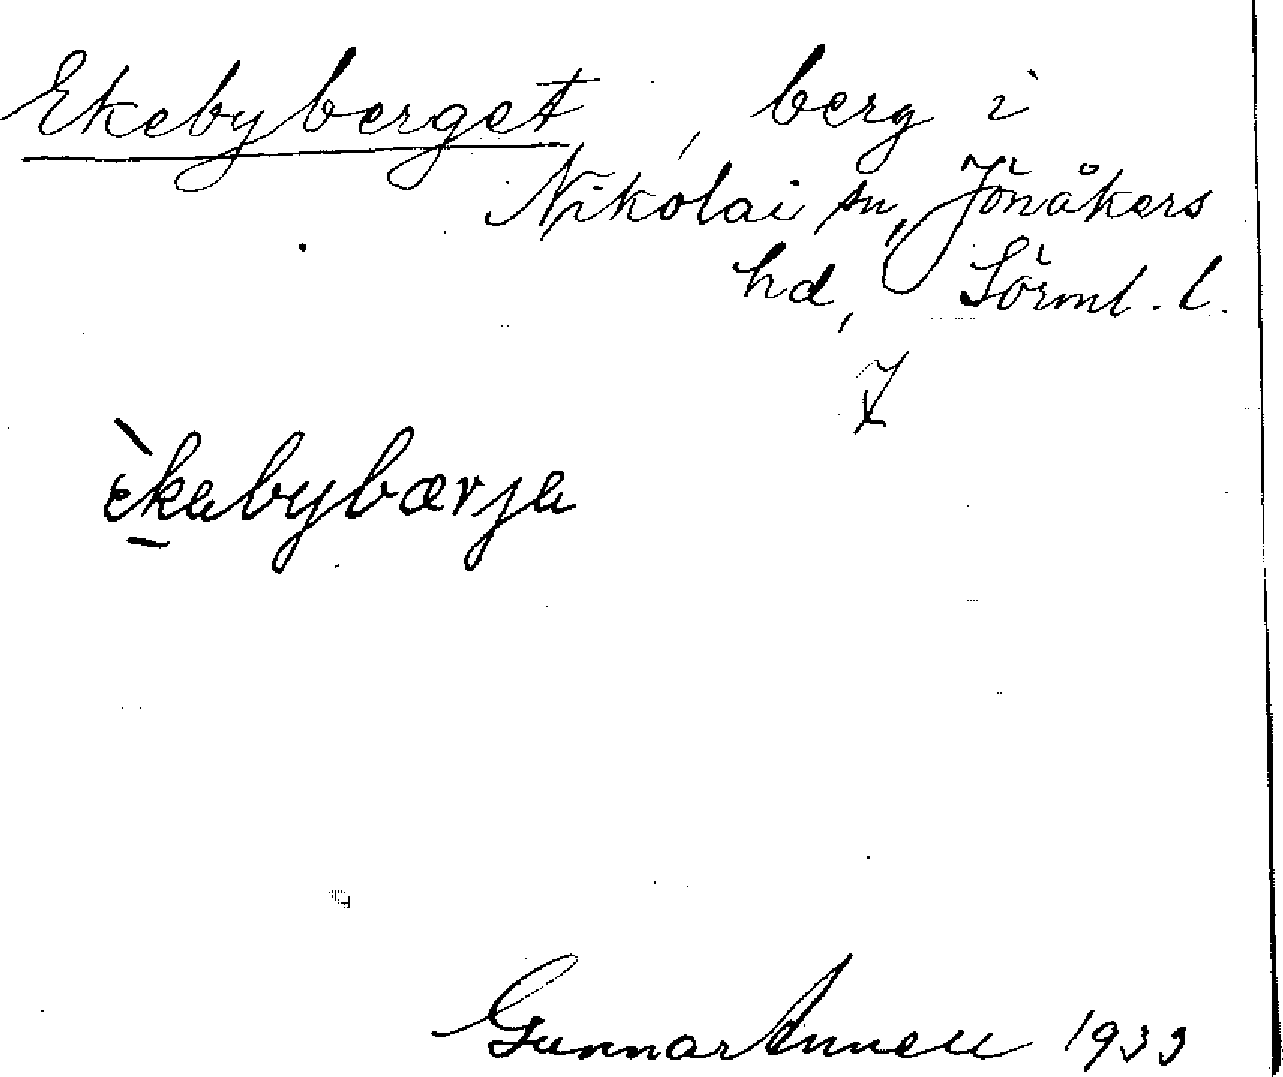 Ekebyberget, berg i
Nikolai sn, Jönåkers
hd, Sörml. l.
ekabybærja
Gunnar Annell 1933